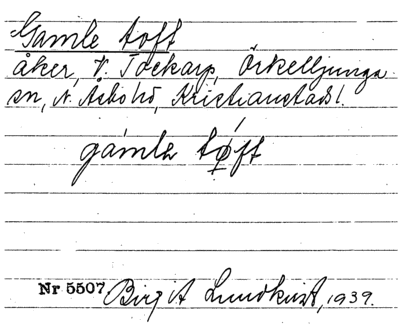 Gamle toft
åker, V. Tockarp, Örkelljunga
sn, N. Åsbo hd, Kristianstads l.
gámlə tǫ́ft
Nr 5507. Birgit Lundkvist, 1939.